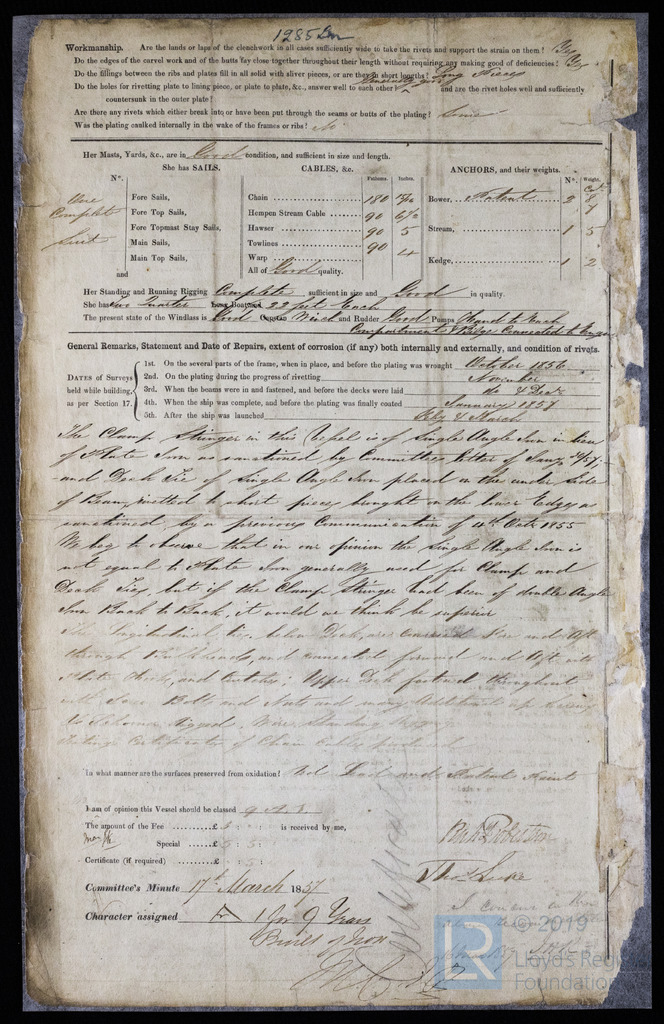 1285 Iron
Workmanship. Are the lands or laps of the clenchwork in all cases sufficiently wide to take the rivets and support the strain on them? Yes
Do the edges of the carvel work and of the butts lay close together throughout their length without requiring any making good of deficiencies? Yes
Do the fillings between the ribs and plates fill in all solid with sliver pieces, or are they in short lengths? Long Pieces
Do the holes for rivetting plate to lining piece, or plate to plate, &c., answer well to each other? generally good and are the rivet holes well and sufficiently
countersunk in the outer plate?
Are there any rivets which either break into or have been put through the seams or butts of the plating? Some
Was the plating caulked internally in the wake of the frames or ribs? No
Her Masts, Yards, &c., are in Good condition, and sufficient in size and length.
She has SAILS. CABLES, &c. Fathoms. Inches. ANCHORS, and their weights. Nº. Weight.
Nº.
One Complete Suit
Fore Sails,
Fore Top Sails,
Fore Topmast Stay Sails,
Main Sails,
Main Top Sails,
and
Chain 180
Hempen Stream Cable 90 6½
Hawser 90 5
Towlines 90
Warp 4
All of Good quality.
Bower, Patent 2 8
7
Stream, 1 5
Kedge, 1 2
Her Standing and Running Rigging Complete sufficient in size and Good in quality.
She has Two Quarter Long Boat 22 feet Each
The present state of the Windlass is Good Capstan Winch and Rudder Good Pumps Hand to Each
Compartment & Bilge Connected to Engine
General Remarks, Statement and Date of Repairs, extent of corrosion (if any) both internally and externally, and condition of rivets.
DATES of Surveys held while building, as per Section 17.
1st. On the several parts of the frame, when in place, and before the plating was wrought October 1856
2nd. On the plating during the progress of rivetting November
3rd. When the beams were in and fastened, and before the decks were laid do & Decr
4th. When the ship was complete, and before the plating was finally coated January 1857
5th. After the ship was launched Feby & March
The Clamp Stringer in this Vessel is of Single Angle Iron in lieu
of Plate Iron as sanctioned by Committees letter of Jany /57,
and Deck Tie of Single Angle Iron placed on the under side
of Beam, rivetted to short pieces brought on the lower Edges as
sanctioned by a previous Communication of 4th Octr 1855
We beg to observe that in our opinion the Single Angle Iron is
not equal to Plate Iron generally used for Clamp and
Deck Ties, but if the Clamp Stringer had been of double Angle
Iron Back to Back, it would we think be superior
The Longitudinal ties below Deck, are Carried Fore and Aft
through Bulkheads, and connected forward and Aft with
Plate and ; Upper Deck fastened throughout
with Iron Bolts and Nuts and
Schooner Rigged, Wire Standing Rigging
Testing Certificates of Chain Cables produced
In what manner are the surfaces preserved from oxidation? Red Lead and Patent Paint
I am of opinion this Vessel should be classed 9 A 1
The amount of the Fee £ is received by me,
Special £ 5
Certificate (if required) £
Robt Robertson
Thos
I concur
Committee's Minute 17th March 1857
Character assigned A 1 for 9 Years
Built of Iron
LR
© 2019
Lloyd's Register
Foundation